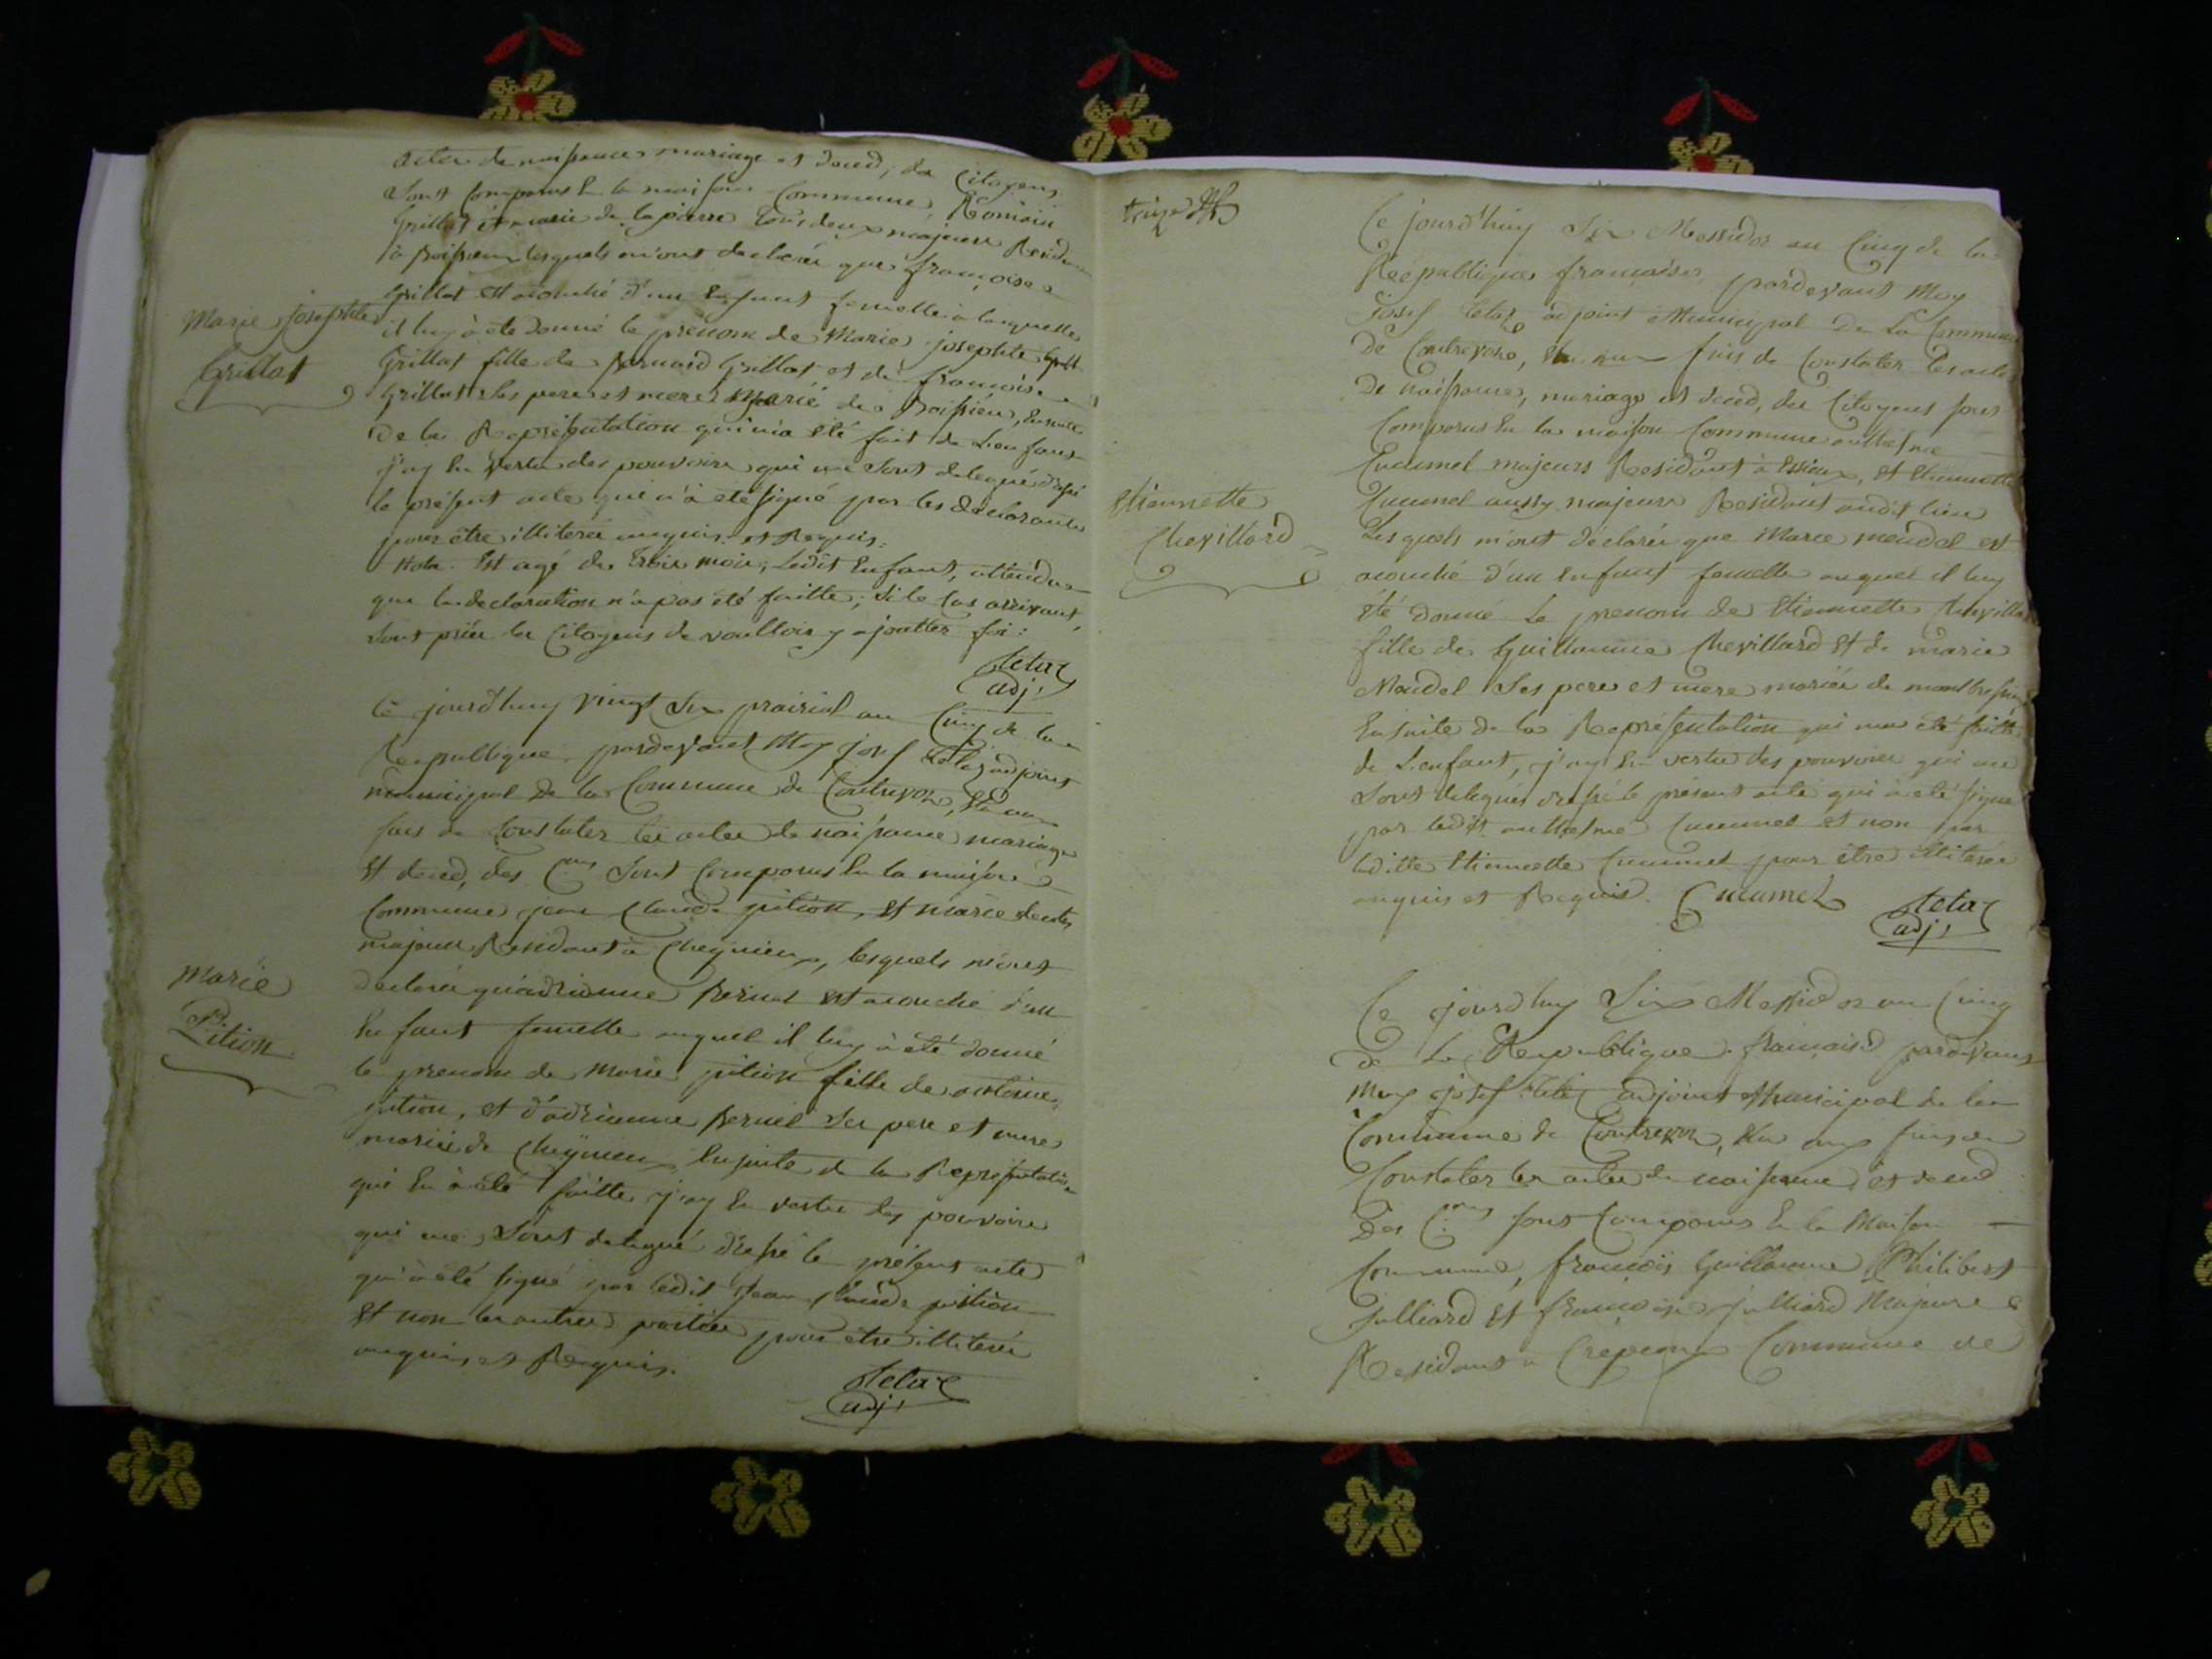 actes de naissances mariage et deced, des Citoyens
Sont Comparus En la maison Commune, Romain
Grillat et marie de la pierre tous deux majeurs Residents
à poissieu lesquels m'ont declaré que françoise
Grillat Est acouché d'un Enfant femelle à laquelle
il luy à eté donné le prenom de Marie josephte
Grillat fille de Bernard Grillat et de francoise
Grillat Ses pere et mere marié de Poissieu, Ensuite
De la Representation qui m'a Eté fait de L'enfant
j'ay En vertu des pouvoirs qui me Sont delegué dressé
le présent acte qui n'à eté signé par les déclarants
pour être illiterés enquis et Requis.
Marie josephte
Grillat
Nota. Est agé de trois mois, Ledit Enfant, attendu
que la declaration n'a pas eté faitte; Si le Cas arrivant,
Sont priés les Citoyens de voulloir y ajoutter foi:
Tetaz
adj.
Ce jourd'huy vingt Six prairial an Cinq de la
Republique pardevant Moy josef Tetaz adjoint
municipal de la Commune de Contrevoz, Elu aux
fins de Constater les actes de naissance mariage
Et deced, des C.ens Sont Comparus En la maison
Commune jean Claude pition, Et marie
majeurs Residants à Cheynieu, lesquels m'ont
declaré qu'adrienne Bernel Est acouché d'un
Enfant femelle auquel il luy à eté donné
le prenom de Marie pition fille de antoine
pition, et d'adrienne Bernel Ses pere et mere
mariés de Cheynieu Ensuite de la Representation
qui En à eté faitte j'ay En vertu des pouvoirs
qui me Sont delegué dressé le présent acte
qui à eté signé par ledit jean Claude pition
Et non les autres parties pour etre illiterés
enquis et Requis.
Marie
Pition
Tetaz
adj.
treize
Ce jourd'huy Six Messidor an Cinq de la
Réepublique française, pardevant Moy
Josef Tetaz adjoint Municipal De La Commune
De Contrevoz, Elu aux fins de Constater les actes
De naissance, mariage et deced, des Citoyens Sont
Comparus En la maison Commune anthelme
Cucumel majeurs Residant à Essieux, Et Etiennette
Cucumel aussy majeure Residant audit lieu
Lesquels m'ont déclaré que Marie meudel est
acouché d'un Enfant femelle auquel il luy
Eté donné Le prenom de Etiennette Chevillard
fille de Guillaume Chevillard Et de marie
Meudel Ses pere et mere mariés de
Ensuite de la Representation qui m'a eté faitte
de L'enfant, j'ay En vertu des pouvoirs qui me
Sont delegués dressé le présent acte qui à eté signé
par ledit anthelme Cucumel et non par
laditte Etiennette Cucumel pour être illiterée
enquis et Requis. Cucumel Tetaz
adj.
Etiennette
Chevillard
Ce jourd'huy Six Messidor an Cinq
de La Republique française pardevant
Moy josef Tetaz adjoint Municipal de la
Commune de Contrevoz, Elu aux fins de
Constater les actes de naissance, et deced
Des C.ens Sont Comparus En la Maison
Commune, françois Guillaume Philibert
Julliard Et françoise Julliard Majeure
Residants à Crepeoux Commune de